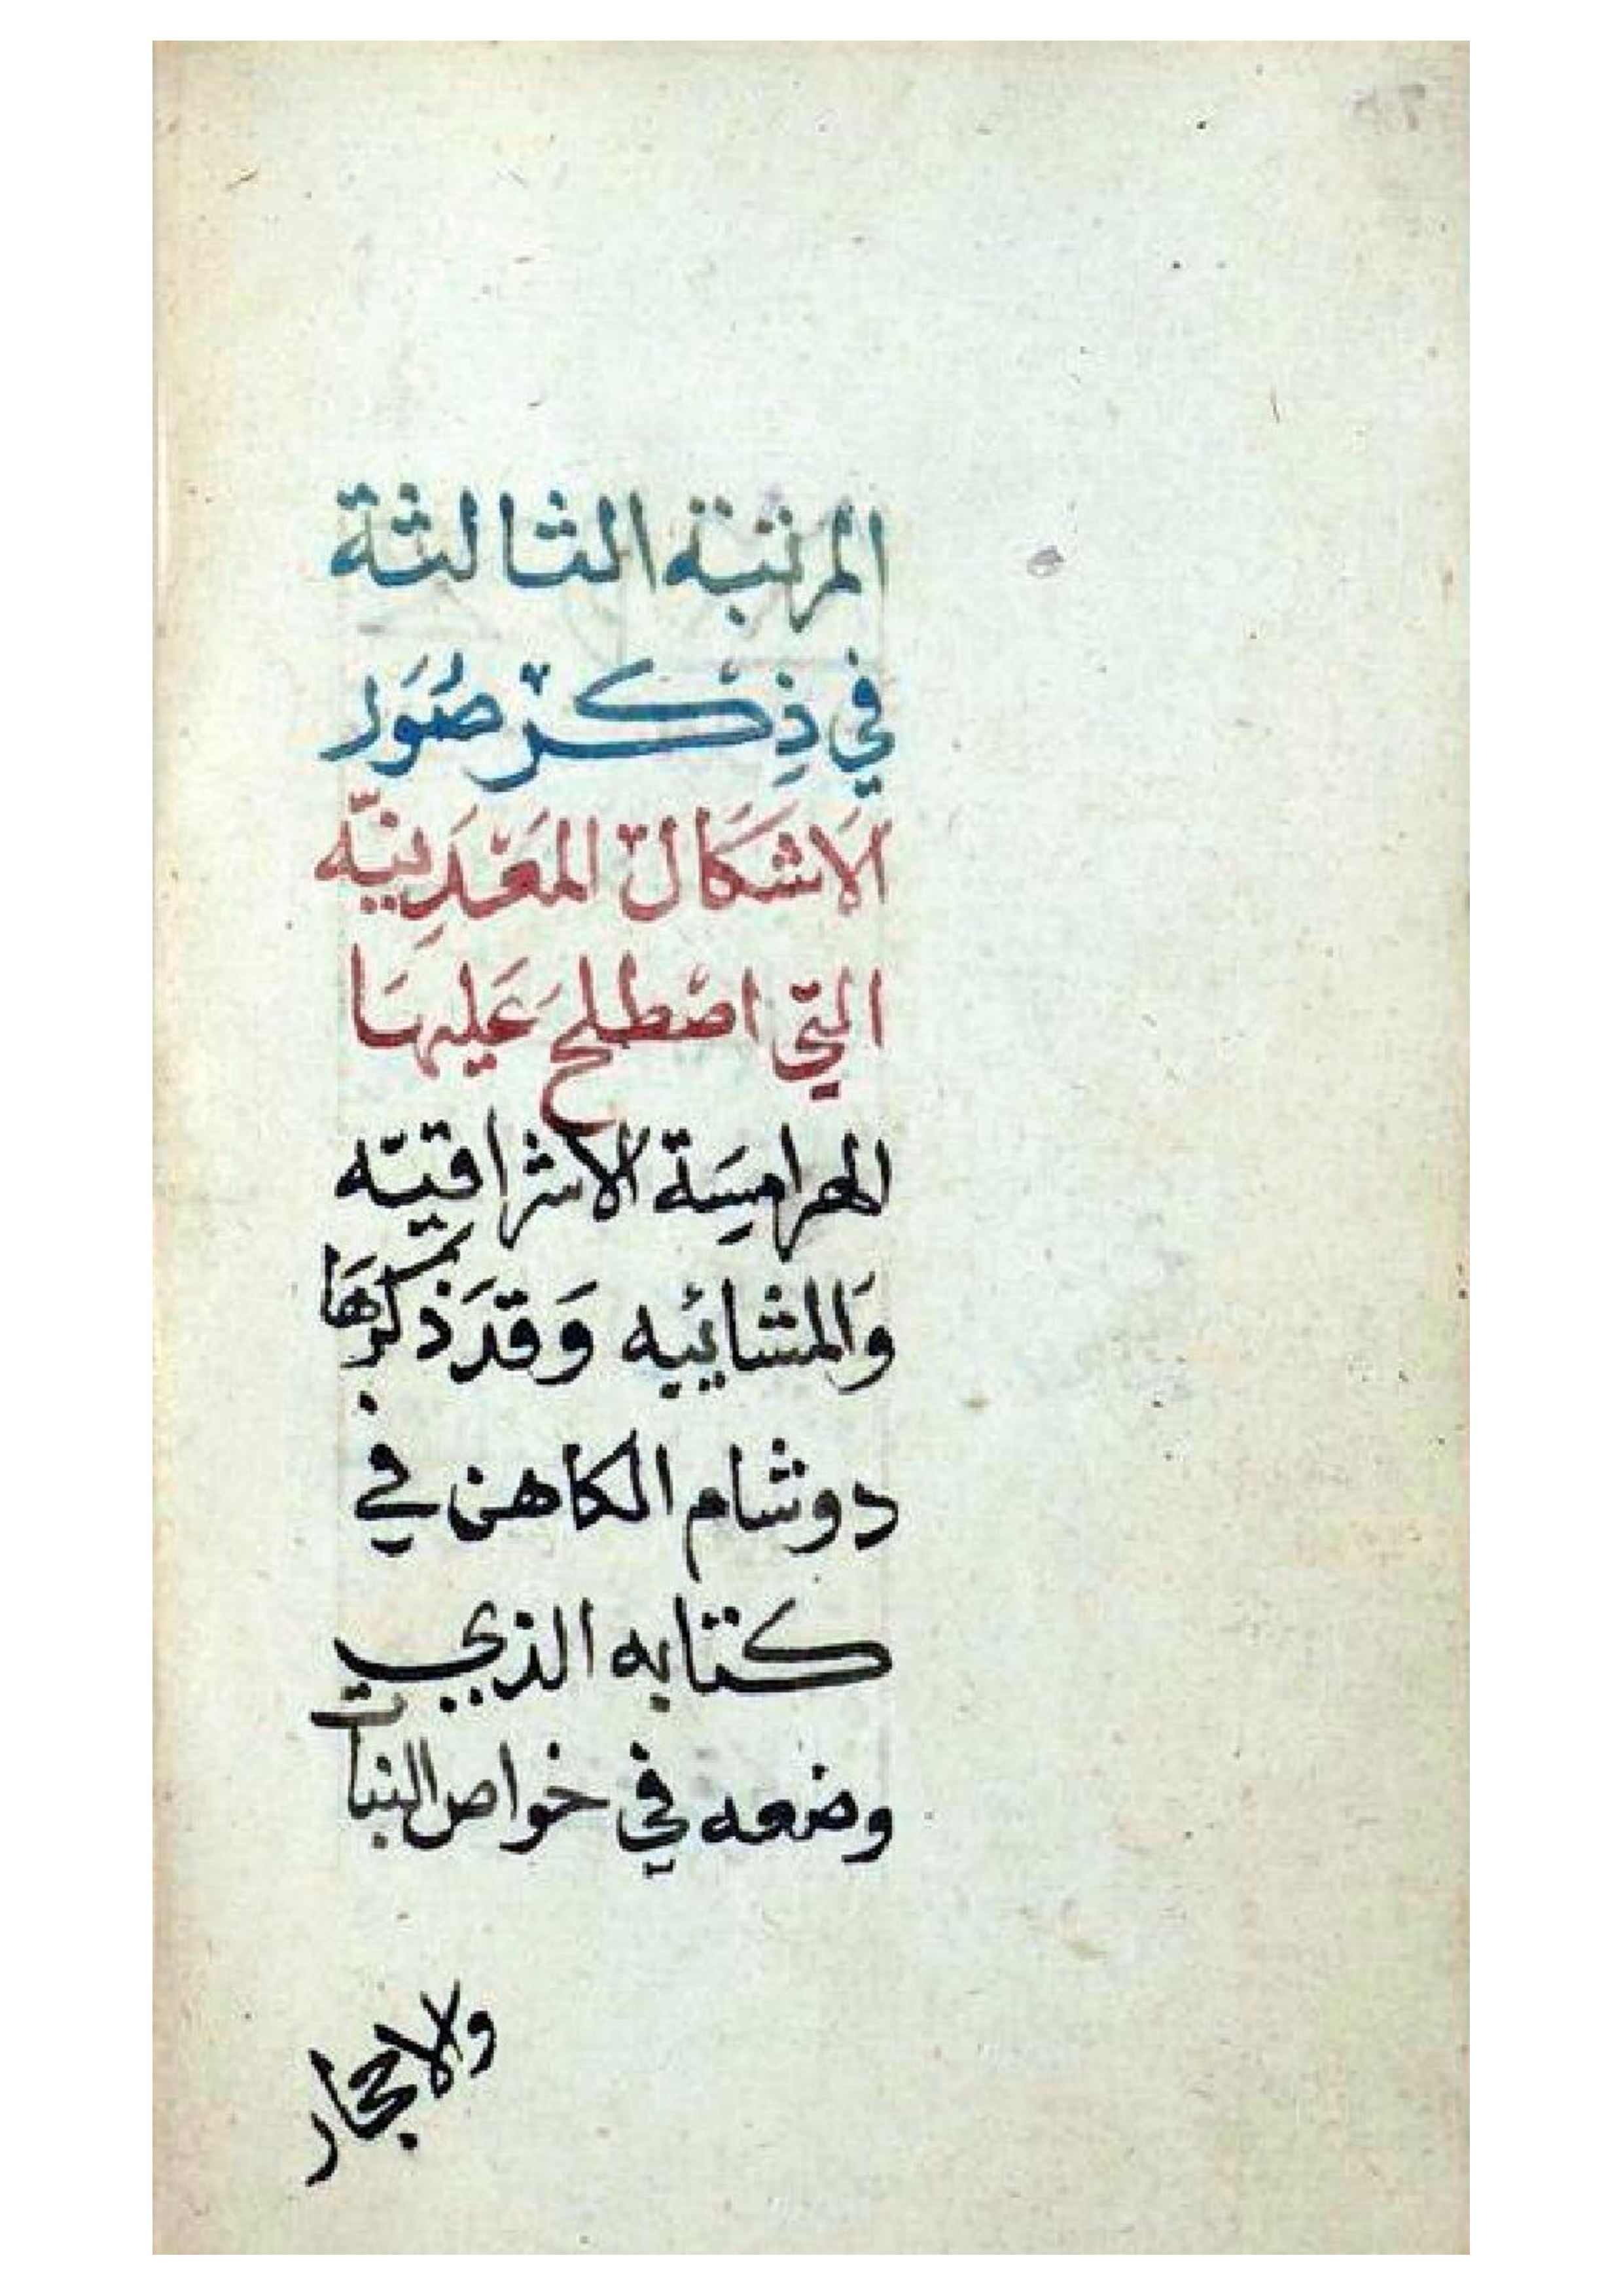 المرتبة الثالثة
في ذِكرْ صُوَر
الاَشكَالْ المَعْدَنِيّه
التّي اصْطلحَ عَليهَا
الهرامِسَة الاشراقيّه
وَالمشائيه وَقدَ ذكرهَا
دوشام الكاهن في
كتابه الذي
وضعه في خواص النبات
ولاحجار